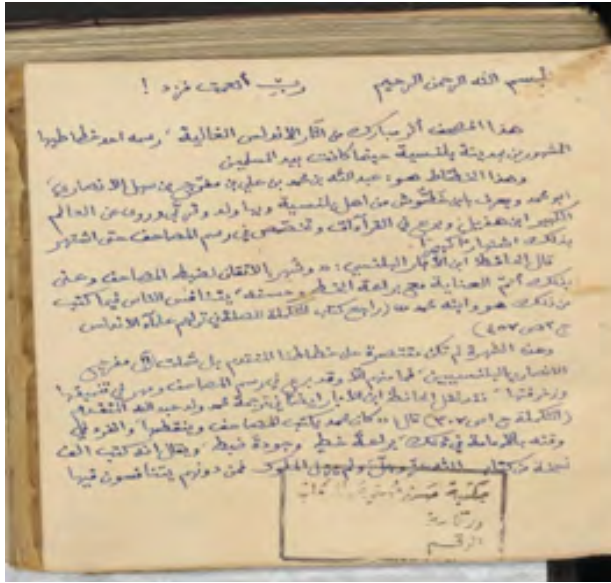 بسم الله الرحمن الرحيم رب أنعمت فزد !
هذا المصحف أثر مبارك من آثار الاندلس الغالية، رسمه احد خطاطيها
المشهورين بمدينة بلنسية حينما كانت بيد المسلمين
وهذا الخطاط هو: عبد الله بن محمد بن علي بن مفرج بن سهل الانصاري
ابو محمد ويعرف بابن غطوش من اهل بلنسية وبها ولد وقرأ وروى عن العالم
الكبير ابن هذيل وبرع في القرآءات وتخصص في رسم المصاحف حتى اشتهر
بذلك اشتهارا كبيرا
قال الحافظ ابن الأبار البلنسي: «وشهر بالاتقان لضبط المصاحف وعني
بذلك أتم العناية مع براعة الخط وحسنه، يتنافس الناس فيما كتب
من ذلك هو وابنه محمد» (راجع كتاب التكملة للصلة في تراجم علماء الاندلس
ج ٢ ص
وهذه الشهرة لم تكن مقتصرة على خطاطنا المتقدم بل شملت آل مفرج
الانصاريين البلنسيين، فما منهم إلا وقد برع في رسم المصاحف ومهر في تنميقها
وزخرفتها، فقد نقل الحافظ ابن الأبار ايضا في ترجمة محمد ولد عبد الله المتقدم
(التكملة ج ١ ص ٣٠٧) قال: «كان محمد يكتب المصاحف وينقطها وانفرد في
وقته بالامامة في ذلك براعة خط وجودة ضبط، ويقال انه كتب الف
نسخة من كتاب الله عز وجل ولم يزل الملوك فمن دونهم يتنافسون فيها
مكتبة
وزارة
الرقم